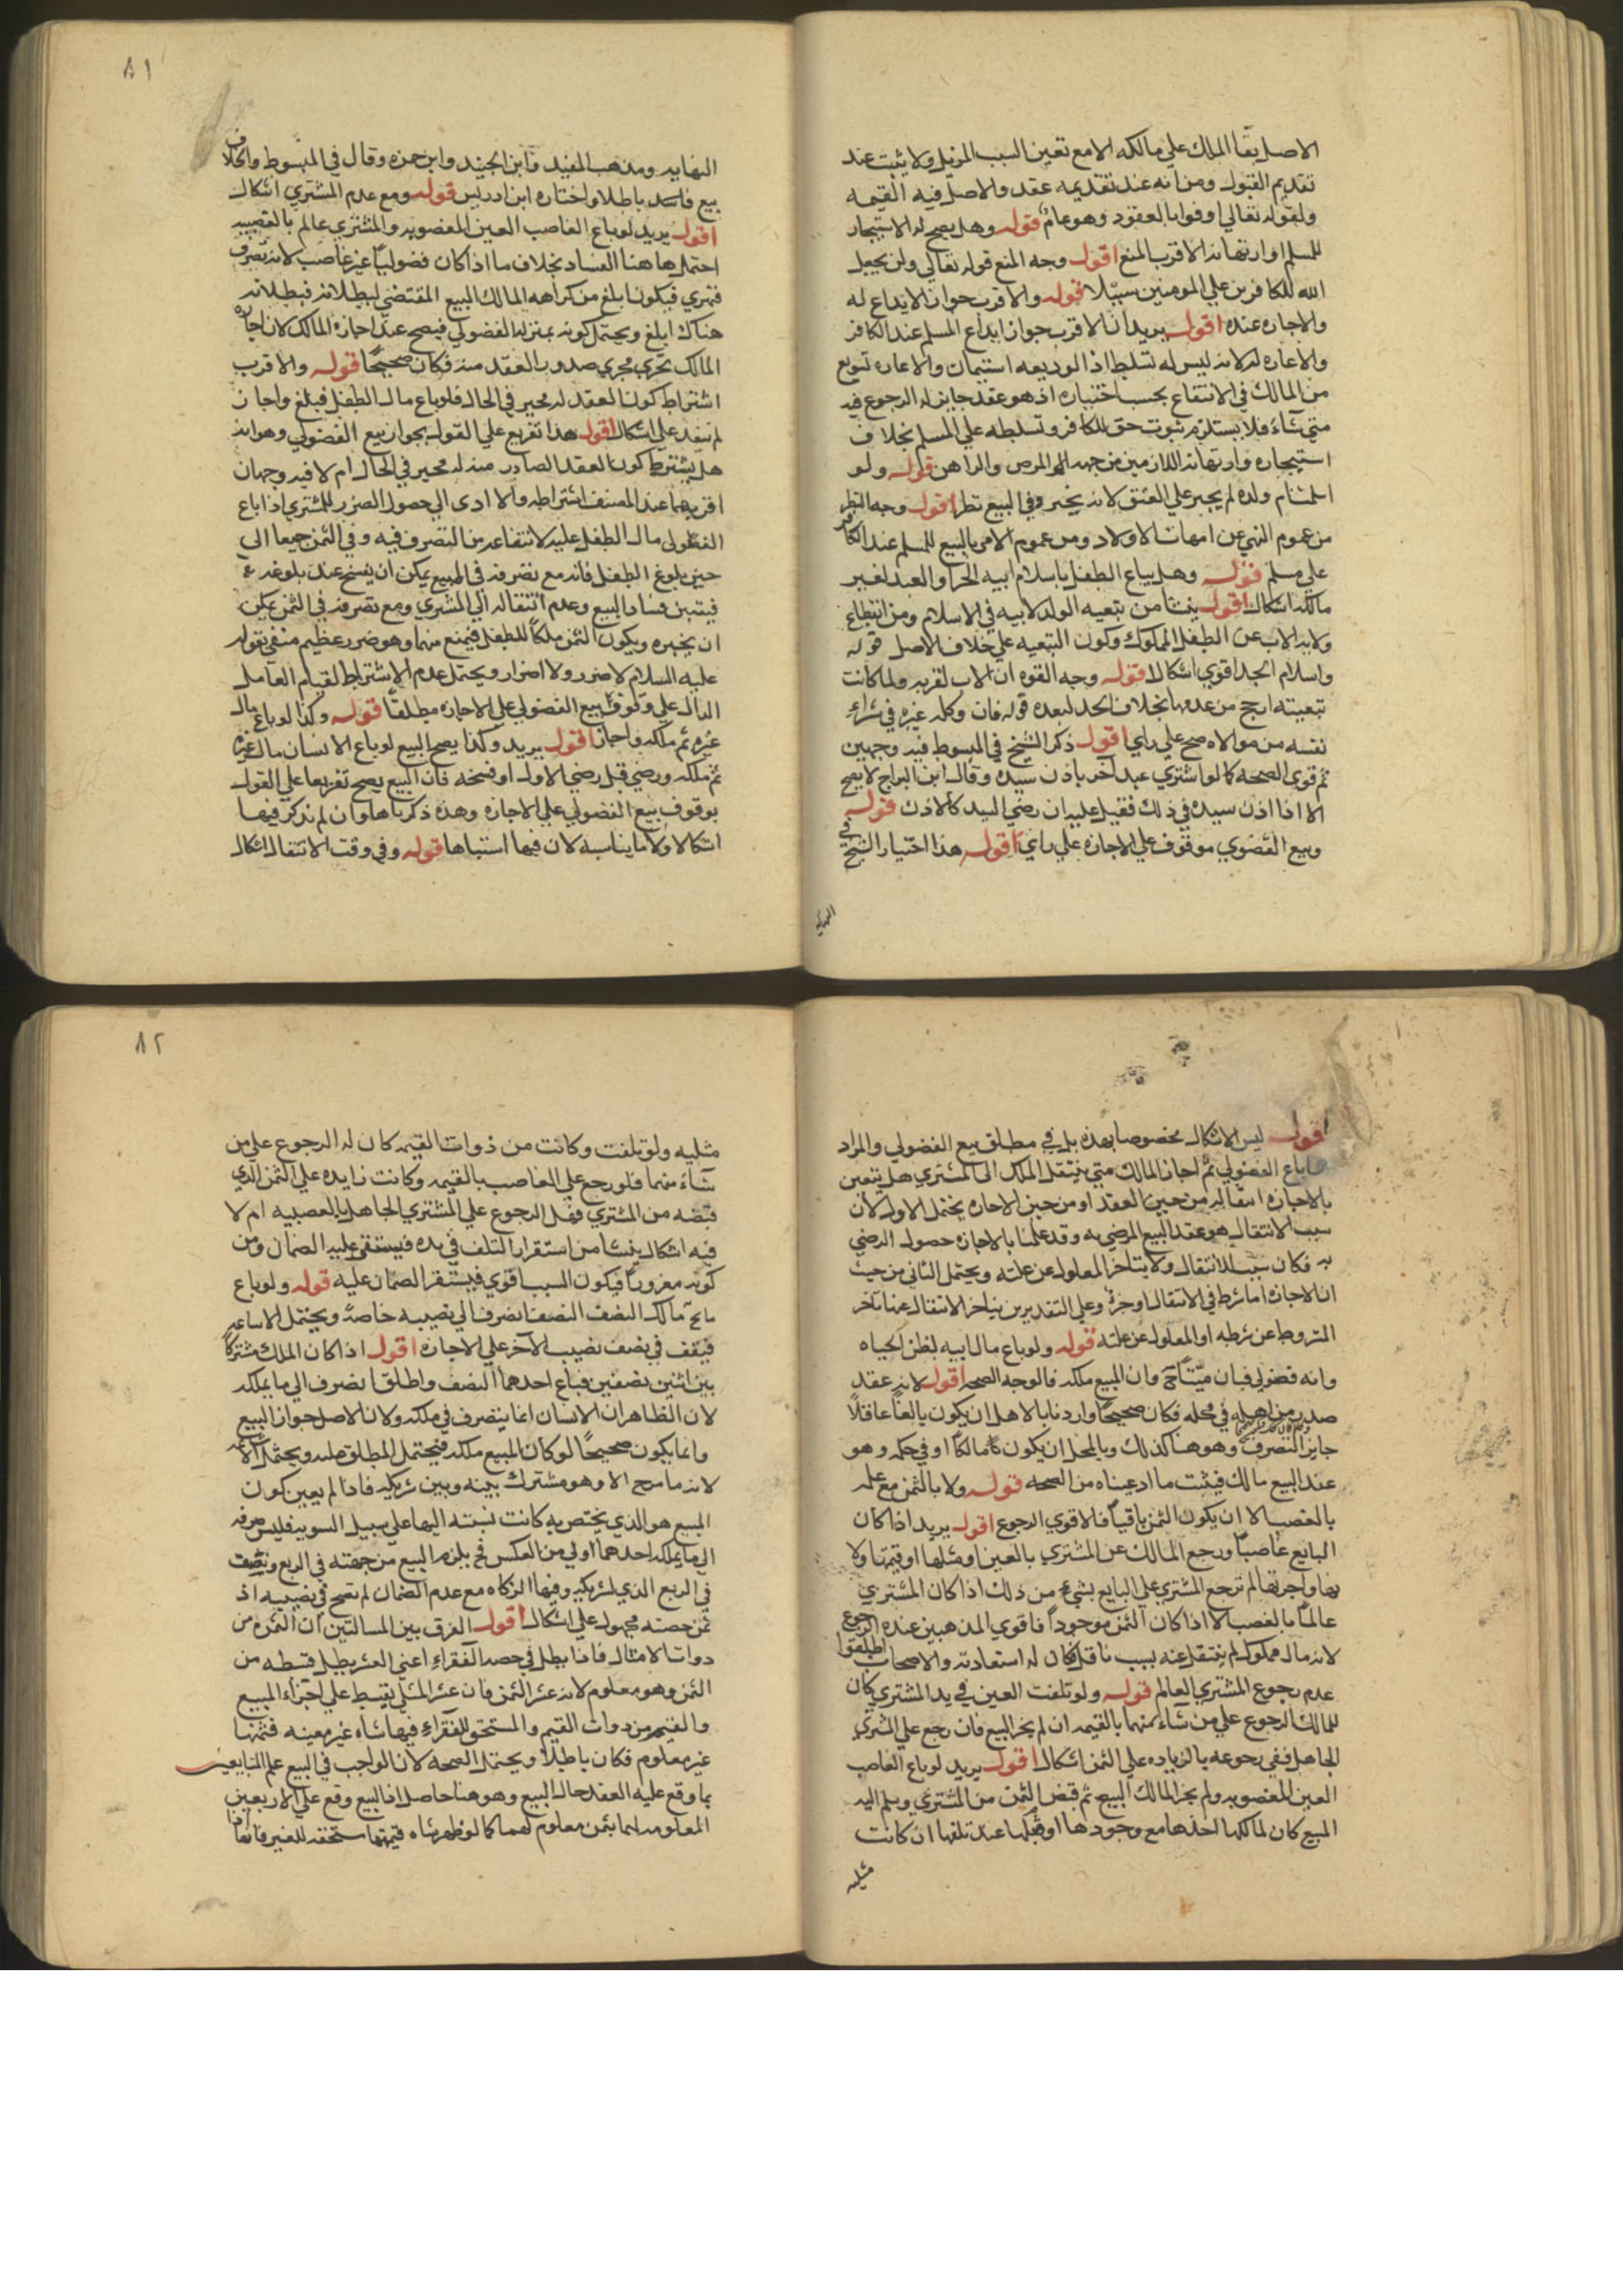 الاصل بقا الملك علي مالكه الا مع تعين السبب المزيل ولا يثبت عند
تقديم القبول ومن انه عند تقديمه عقد والاصل فيه القيمه
ولقوله تعالي اوفوا بالعقود وهو عام قوله وهل يصح له الاستيجار
للمسلم او ارتهانه الاقرب المنع اقول وجه المنع قوله تعالي ولن يجعل
الله للكافرين علي المومنين سبيلا قوله والاقرب جواز الايداع له
والاجاره عنده اقول يريد ان الاقرب جواز ايداع المسلم عند الكافر
والاعاره له لانه ليس له تسلط اذ الوديعه استيمان والاعاره تسويغ
من المالك في الانتفاع بحسب اختياره اذ هو عقد جايز له الرجوع فيه
متي شاء فلا يستلزم ثبوت حق للكافر وتسلطه علي المسلم بخلاف
استيجاره وارتهانه اللازمين من جهه والراهن قوله ولو
اسلمت ام ولده لم يجبر علي العتق لانه يخير وفي البيع نظر اقول وجه النظر
من عموم النهي عن امهات الاولاد ومن عموم الامر بالبيع للمسلم عند الكافر
علي مسلم قوله وهل يباع الطفل باسلام ابيه الحر او العبد لغير
مالكه اشكال اقول ينشا من تبعيه الولد لابيه في الاسلام ومن انقطاع
ولايه الاب عن الطفل المملوك وكون التبعيه علي خلاف الاصل قوله
واسلام الجد اقوي اشكالا قوله وجه القوه ان الاب لقربه ولما كانت
تبعيته ارجح من عدمها بخلاف الجد لبعده قوله فان وكله غيره في شراء
نفسه من مولاه صح علي راي اقول ذكر الشيخ في المبسوط فيه وجهين
ثم قوي الصحه كما لو اشتري عبد اخر باذن سيده وقال ابن البراج لا يصح
الا اذا اذن سيده في ذلك فقيل عليه ان رضي السيد كالاذن قوله
وبيع الفضولي موقوف علي الاجازه علي راي اقول هذا اختيار الشيخ في
النهايه
٨١
النهايه ومذهب المفيد وابن الجنيد وابن حمزه وقال في المبسوط والخلاف
بيع فاسد باطل واختاره ابن ادريس قوله ومع عدم المشتري اشكال
اقول يريد لو باع الغاصب العين المغصوبه والمشتري عالم بالغصبيه
احتمل هاهنا الفساد بخلاف ما اذا كان فضوليا غير غاصب لانه تصرف
قهري فيكون ابلغ من كراهه المالك البيع المقتضي لبطلانه فبطلانه
هناك ابلغ ويحتمل كونه بمنزله الفضولي فيصح عند اجازه المالك لان اجازه
المالك تجري مجري صدور العقد منه فكان صحيحا قوله والاقرب
اشتراط كون العقد له مجيز في الحال فلو باع مال الطفل فبلغ واجاز
لم ينفذ علي اشكال اقول هذا تفريع علي القول بجواز بيع الفضولي وهو انه
هل يشترط كون العقد الصادر منه له مجيز في الحال ام لا فيه وجهان
اقربهما عند المصنف اشتراطه والا ادي الي حصول الضرر للمشتري اذا باع
الفضولي مال الطفل عليه لانتفاعه من التصرف فيه وفي الثمن جميعا الي
حين بلوغ الطفل فانه مع تصرفه في المبيع يمكن ان يفسخ عند بلوغه
فيتبين فساد البيع وعدم انتقاله الي المشتري ومع تصرفه في الثمن يمكن
ان يجيزه ويكون الثمن ملكا للطفل فيمنع منهما وهو ضرر عظيم منفي بقوله
عليه السلام لا ضرر ولا اضرار ويحتمل عدم الاشتراط لقيام العامل
الدال علي وقوف بيع الفضولي علي الاجازه مطلقا قوله وكذا لو باع مال
غيره ثم ملكه واجاز اقول يريد وكذا يصح البيع لو باع الانسان مال غيره
ثم ملكه ورضي قبل رضي الاول او فسخه فان البيع يصح تفريعا علي القول
بوقوف بيع الفضولي علي الاجازه وهذه ذكرناها وان لم نذكر فيها
اشكالا ولا ما يناسبه لان فيها اشتباها قوله وفي وقت الانتقال اشكال
اقول ليس الاشكال مخصوصا بهذه بل في مطلق بيع الفضولي والمراد
باع الفضولي ثم اجاز المالك متي ينتقل الملك الي المشتري هل يتعين
بالاجازه انتقاله من حين العقد او من حين الاجازه يحتمل الاول لان
سبب الانتقال هو عقد البيع المرضي به وقد علمنا بالاجازه حصول الرضي
به فكان سببا للانتقال ولا يتاخر المعلول عن علته ويحتمل الثاني من حيث
ان الاجازه اما شرط في الانتقال او جزء وعلي التقديرين يتاخر الانتقال عنها تاخر
المشروط عن شرطه او المعلول عن علته قوله ولو باع مال ابيه لظن الحياه
وانه فضولي فبان ميتا ح وان المبيع ملكه فالوجه الصحه اقول لانه عقد
صدر من اهله في محله فكان صحيحا واردنا بالاهل ان يكون بالغا عاقلا
جايز التصرف وهو هنا كذلك وبالمحل ان يكون مالكا او في حكمه وهو
عند البيع مالك فيثبت ما ادعيناه من الصحه قوله ولا بالثمن مع علمه
بالغصب الا ان يكون الثمن باقيا فالاقوي الرجوع اقول يريد اذا كان
البايع غاصبا ورجع المالك عن المشتري بالعين او مثلها او قيمتها ولا
بها واجرتها لم يرجع المشتري علي البايع بشيء من ذلك اذا كان المشتري
عالما بالغصب الا اذا كان الثمن موجودا فاقوي المذهبين عنده الرجوع
لانه مال مملوك لم ينتقل عنه بسبب ناقل فكان له استعادته والاصحاب اطلقوا
عدم رجوع المشتري العالم قوله ولو تلفت العين في يد المشتري كان
للمالك الرجوع علي من شاء منهما بالقيمه ان لم يجز البيع فان رجع علي المشتري
الجاهل ففي رجوعه بالزياده علي الثمن اشكال اقول يريد لو باع الغاصب
العين المغصوبه ولم يجز المالك البيع ثم قبض الثمن من المشتري وسلم اليه
المبيع كان لمالكها اخذها مع وجودها او عند تلفها ان كانت
مثليه
٨٢
مثليه ولو تلفت وكانت من ذوات القيم كان له الرجوع علي من
شاء منهما فلو رجع علي الغاصب بالقيمه وكانت زايده علي الثمن الذي
قبضه من المشتري فهل الرجوع علي المشتري الجاهل بالغصبيه ام لا
فيه اشكال ينشا من استقرار التلف في يده فيستقر عليه الضمان ومن
كونه مغرورا فيكون السبب اقوي فيستقر الضمان عليه قوله ولو باع
مالك النصف النصف انصرف الي نصيبه خاصه ويحتمل الاشاعه
فيقف في نصف نصيب الاخر علي الاجازه اقول اذا كان الملك مشتركا
بين اثنين نصفين فباع احدهما النصف واطلق انصرف الي ما يملكه
لان الظاهر ان الانسان انما يتصرف في ملكه ولان الاصل جواز البيع
وانما يكون صحيحا لو كان المبيع ملكه فيحتمل المطلق عليه ويحتمل الاشاعه
لانه ما من جزء الا وهو مشترك بينه وبين شريكه فاذا لم يعين كون
المبيع هو الذي يختص به كانت نسبته اليهما علي سبيل السويه فليس صرفه
الي ما يملكه احدهما اولي من العكس فح يلزم البيع من جهته في الربع ويقف
في الربع الذي لشريكه وفيها الزكاه مع عدم الضمان لم يصح في نصيبه اذ
ثمن حصته مجهول علي اشكال اقول الفرق بين المسالتين ان الثمره من
ذوات الامثال فاذا بطل في حصه الفقراء اعني العشر بطل قسطه من
الثمن وهو معلوم لانه عشر الثمن فان عشر المثلي يقسط علي اجزاء المبيع
والغنم من ذوات القيم والمستحق للفقراء فيها شاه غير معينه فثمنها
غير معلوم فكان باطلا ويحتمل الصحه لان الواجب في البيع علم المتبايعين
بما وقع عليه العقد حال البيع وهو هنا حاصل اذ البيع وقع علي الاربعين
المعلومه لهما بثمن معلوم لهما كما لو ظهر شاه قيمتها مستحقه للغير